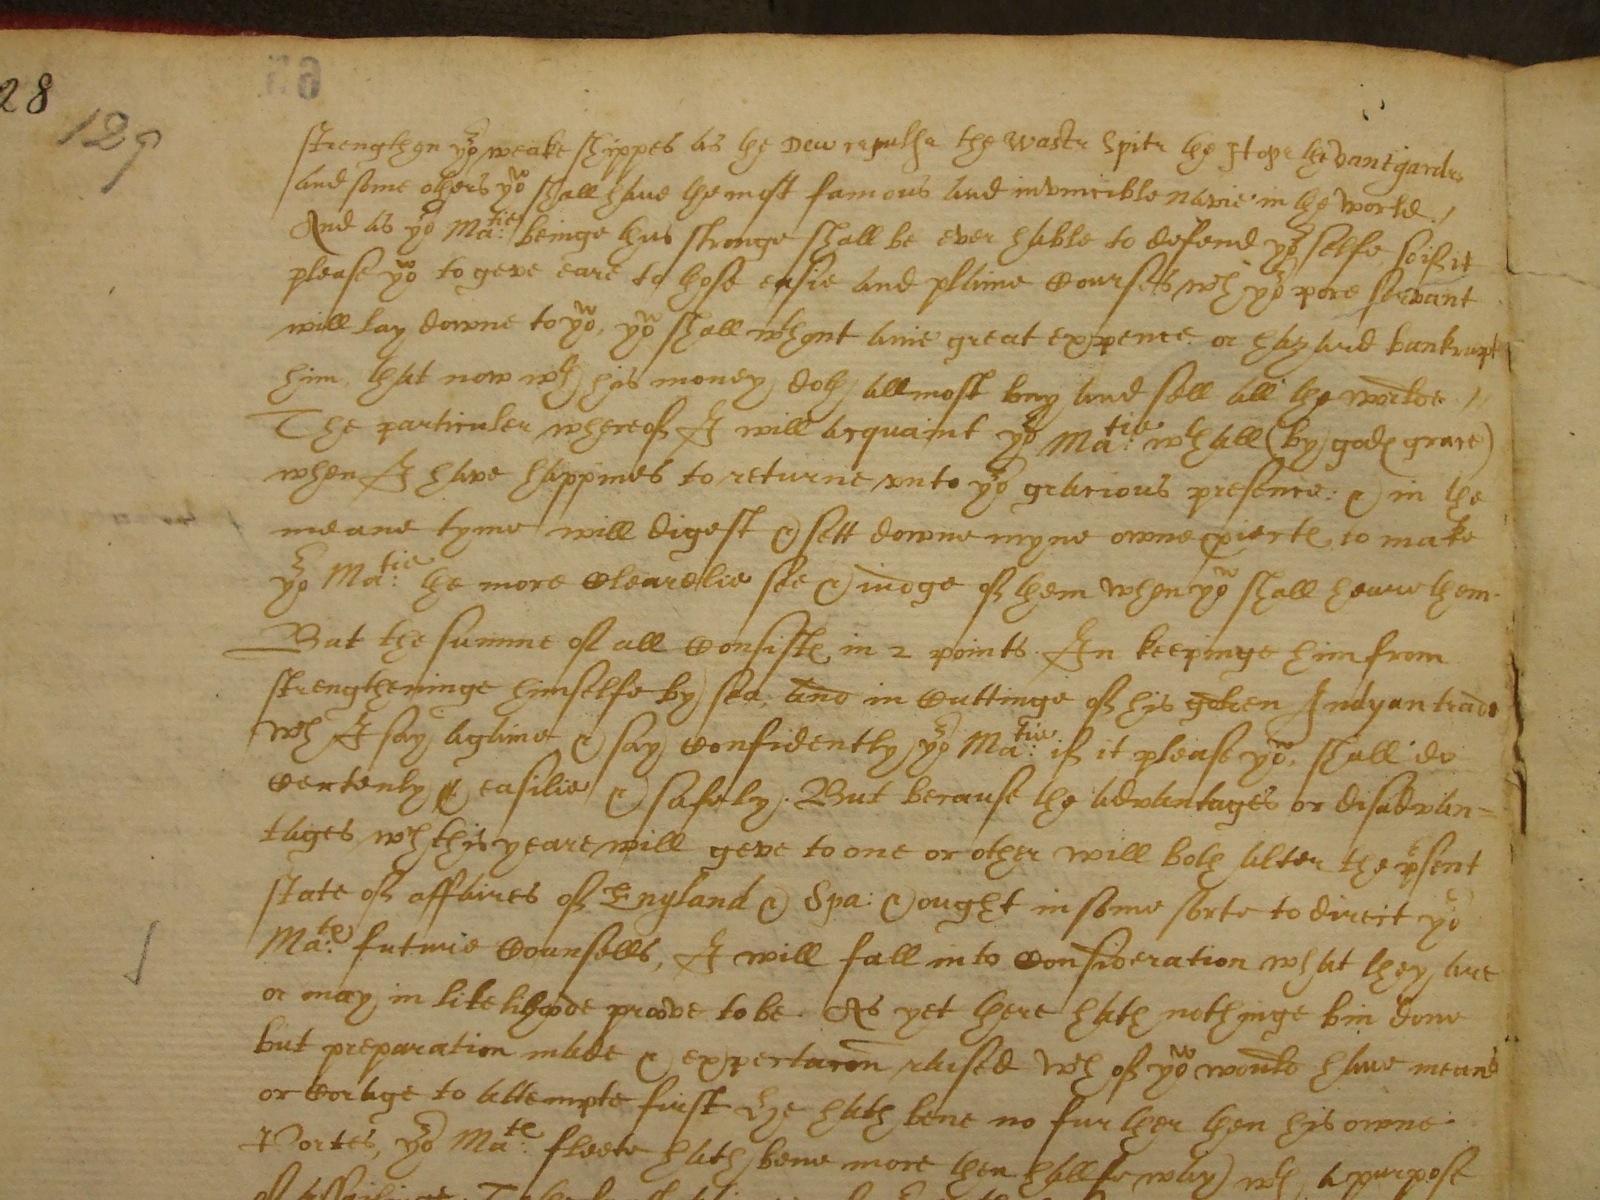 28
129
65
strengthen yor weake shippes as the Dew repulse the Wast Spite the Hope the vantgarde
and some others you shall have the most famous and invincible navie in the world./
And as yor Matie: beinge thus stronge shall be ever hable to defend yor selfe, so if it
please you to geve eare to those easie and plaine courses wch yor pore servant
will lay downe to you, you shall wthout anie great expence or hazard bankrupt
him, that now wth his money doth allmost buy and sell all the worlde //
The particuler whereof I will acquaint yor Matie: wth all (by gods grace)
when I have happines to returne unto yor gracious presence: & in the
meane tyme will digest & sett downe myne owne to make
yor Matie: the more clearelie see & iudge of them when you shall heare them.
But the summe of all consists in 2 points. In keepinge him from
strengtheninge himselfe by sea, and in cuttinge of his golden Indyan trade
wch I say againe & say confidently yor Matie: if it please you, shall do
certenly & easilie & safely. But because the advantages or disadvan=
tages wch this yeare will geve to one or other will both alter the psent
state of affaires of England & Spa: & ought in some sorte to direct yor
Mats: future counsells, I will fall into consideration what they are
or may in likelihoode proove to be. As yet there hath nothinge bin done
but preparation made & expectacon raised wch of you would have meanes
or corage to attempte first. He hath bene no further then his owne
Portes, yor Mats: fleete hath bene more then halfe way wth a purpose
of assailinge.